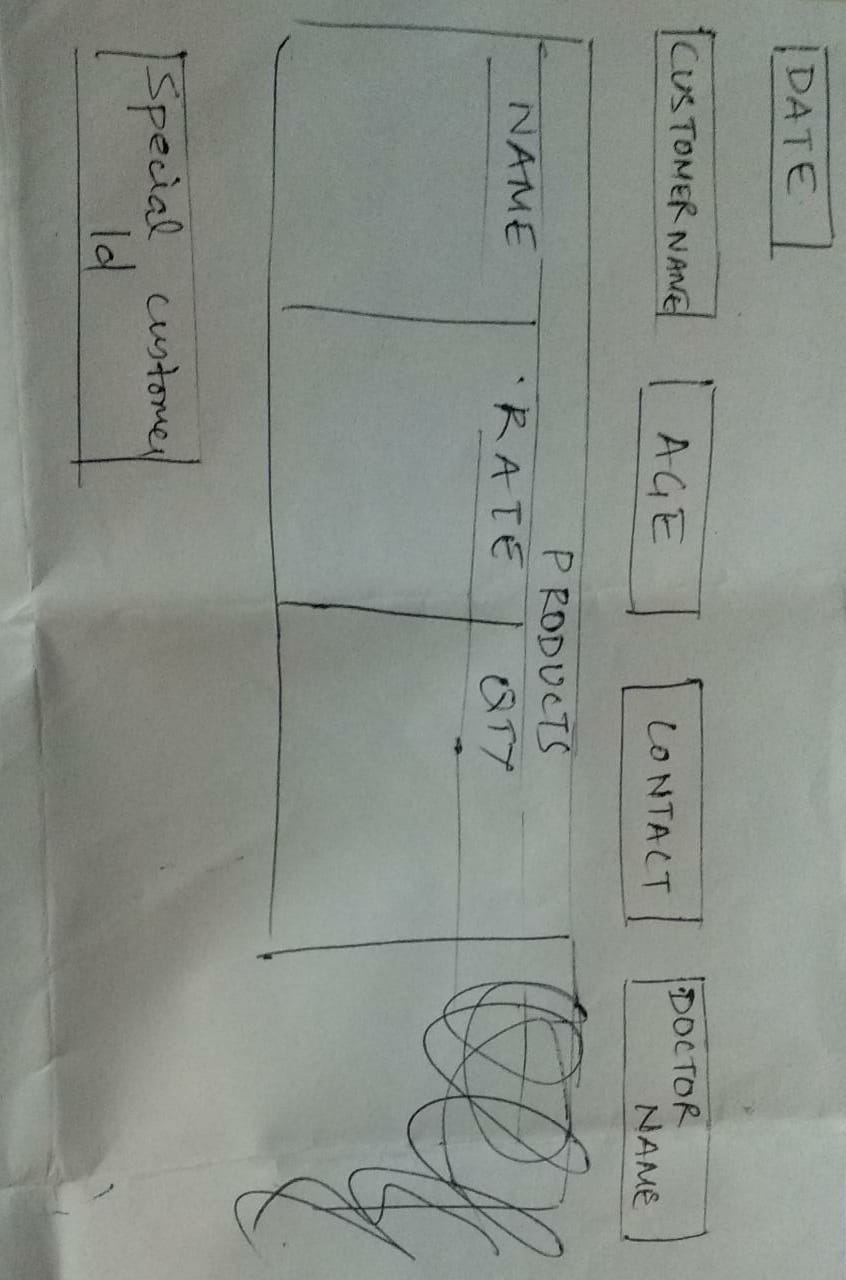 DATE
CUSTOMER NAME
AGE
CONTACT
DOCTOR
NAME
PRODUCTS
NAME
RATE
QTY
Special customer
Id